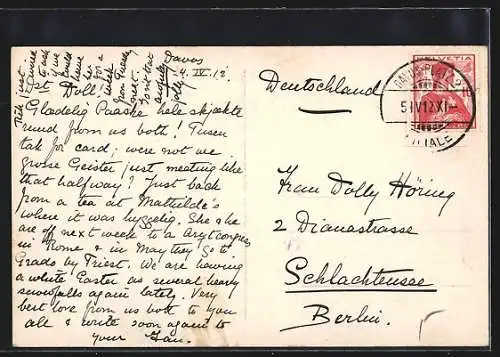 Davos
14. IV. 12.
Dst. Doll!
Gladelig Paaske hele skjøkte
rund from us both! Tusen
tak for card; were not we
grosse Geister just meeting like
that halfway? Just back
from a tea at Mathilde's
where it was hyggelig. She & he
are off next week to a Arytcongress
in Rome & in May they go to
Grado by Triest. We are having
a white Easter as several heavy
snowfalls again lately. Very
best love from us both to you
all & write soon again to
your Gau.
Nick just
to ask
if we
could
have
her for a
week
from Tuesday
next.
so isn't that
jolly
Deutschland
HELVETIA
DAVOS-PLATZ 2
5 IV 12 XI
FILIALE
Frau Dolly Höring
2 Dianastrasse
Schlachtensee
Berlin.